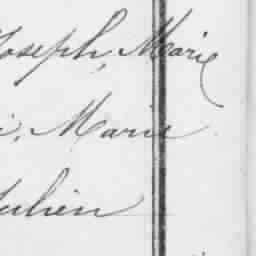 Joseph, Marie
i, Marie
Julien